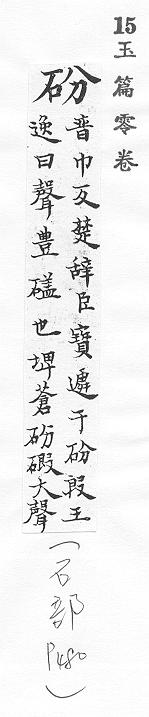 15玉篇零卷
砏
普巾反楚辞巨寶遷于砏𥔵王
逸曰聲豊礚也埤蒼砏磤大聲
(石部 P480)